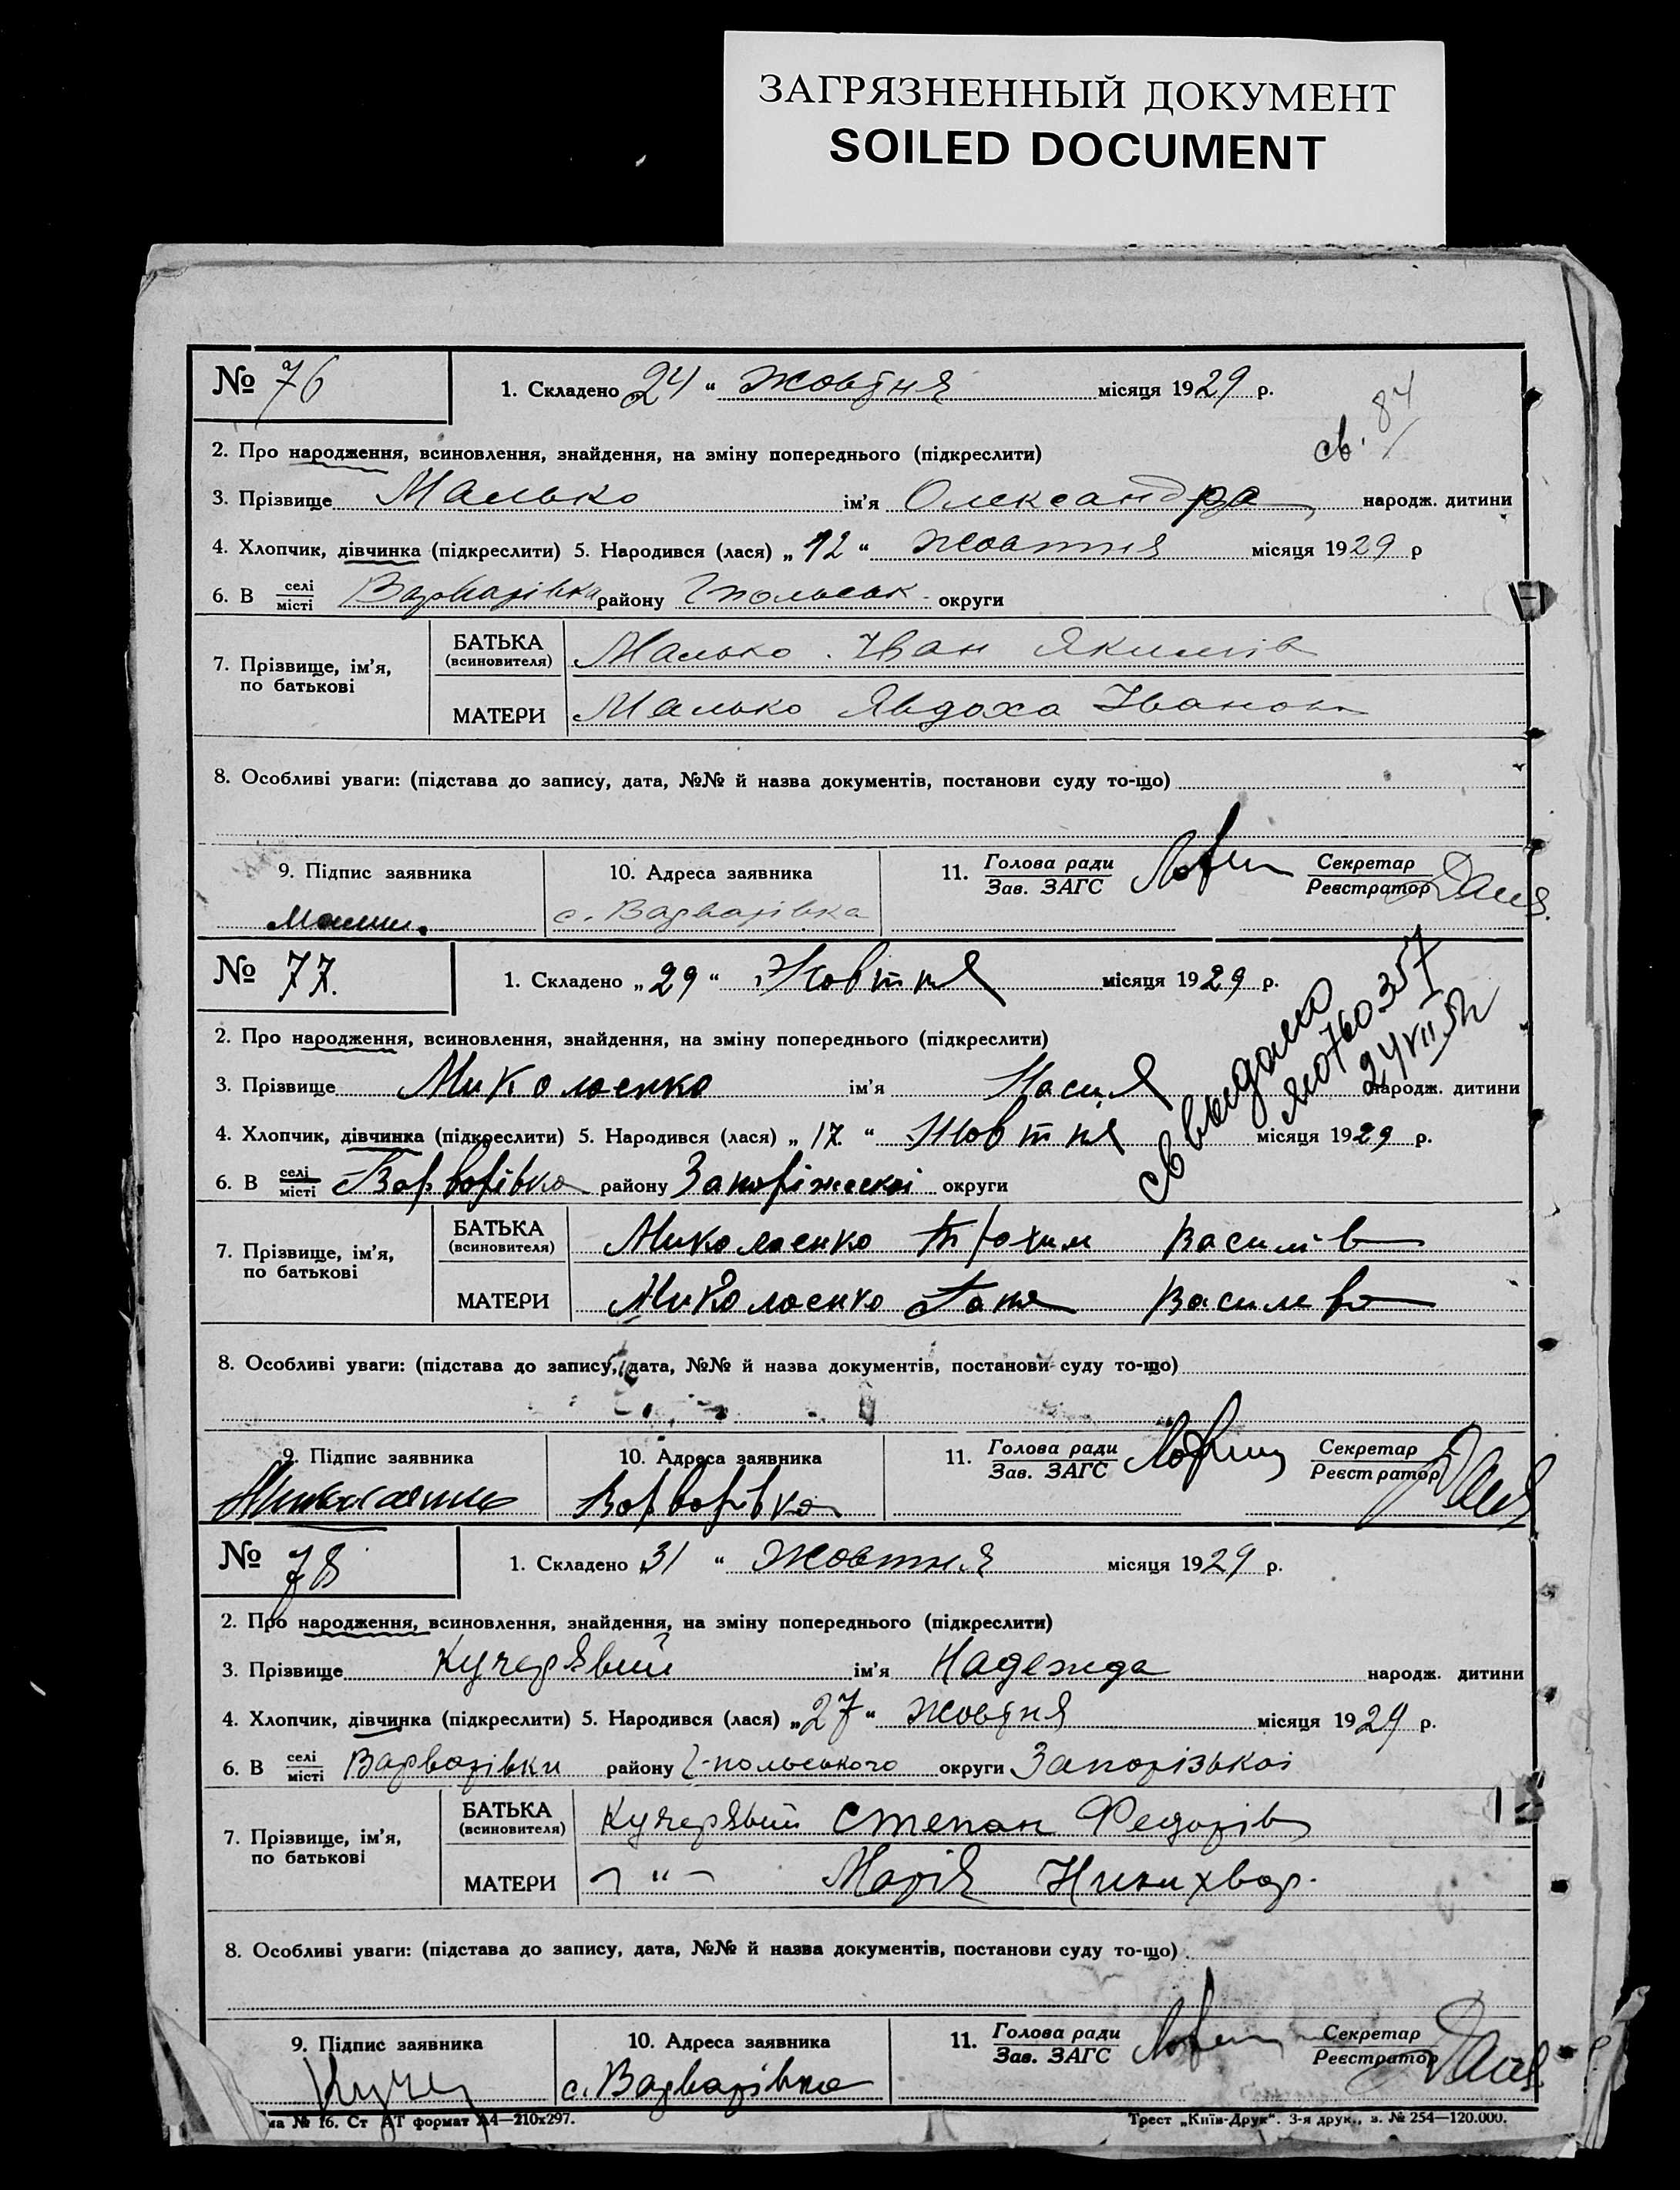 ЗАГРЯЗНЕННЫЙ ДОКУМЕНТ
SOILED DOCUMENT
№ 76
1. Складено 24 “ Жовтня місяця 1929 р.
св. 84
2. Про народження, всиновлення, знайдення, на зміну попереднього (підкреслити)
3. Прізвище Малько ім'я Олександра народж. дитини
4. Хлопчик, дівчинка (підкреслити) 5. Народився (лася) „ 12 “ Жовтня місяця 1929 р
6. В селі місті Варварівка району Гпольськ. округи
7. Прізвище, ім'я, по батькові
БАТЬКА (всиновителя) Малько Іван Якимів
МАТЕРИ Малько Явдоха Іванов
8. Особливі уваги: (підстава до запису, дата, №№ й назва документів, постанови суду то-що)
9. Підпис заявника 10. Адреса заявника 11. Голова ради Зав. ЗАГС Секретар Реєстратор
с. Варварівка
№ 77.
1. Складено „ 29 “ Жовтня місяця 1929 р.
св выдано
ЯЮ760357
24 VII 52
2. Про народження, всиновлення, знайдення, на зміну попереднього (підкреслити)
3. Прізвище Миколаенко ім'я народж. дитини
4. Хлопчик, дівчинка (підкреслити) 5. Народився (лася) „ 17 “ Жовтня місяця 1929 р.
6. В селі місті Варварівка району Запоріжської округи
7. Прізвище, ім'я, по батькові
БАТЬКА (всиновителя) Миколаенко Трохим Василів
МАТЕРИ Миколаенко Ганя Василева
8. Особливі уваги: (підстава до запису, дата, №№ й назва документів, постанови суду то-що)
9. Підпис заявника 10. Адреса заявника 11. Голова ради Зав. ЗАГС Секретар Реєстратор
Миколаенко Варварівка
№ 78
1. Складено 31 “ Жовтня місяця 1929 р.
2. Про народження, всиновлення, знайдення, на зміну попереднього (підкреслити)
3. Прізвище Кучерявий ім'я Надежда народж. дитини
4. Хлопчик, дівчинка (підкреслити) 5. Народився (лася) „ 27 “ Жовтня місяця 1929 р.
6. В селі місті Варварівки району Г-польського округи Запорізькоі
7. Прізвище, ім'я, по батькові
БАТЬКА (всиновителя) Кучерявий Степан Федорів
МАТЕРИ – “ – Марія Никихвор.
8. Особливі уваги: (підстава до запису, дата, №№ й назва документів, постанови суду то-що)
9. Підпис заявника 10. Адреса заявника 11. Голова ради Зав. ЗАГС Секретар Реєстратор
Кучер с. Варварівка
ма № 16. Ст АТ формат А4—210х297.
Трест „Київ-Друк“. 3-я друк., з. № 254—120.000.